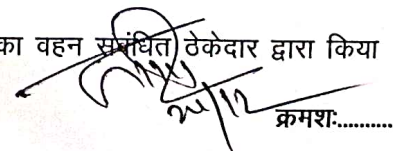 का वहन संबंधित ठेकेदार द्वारा किया
क्रमशः..........